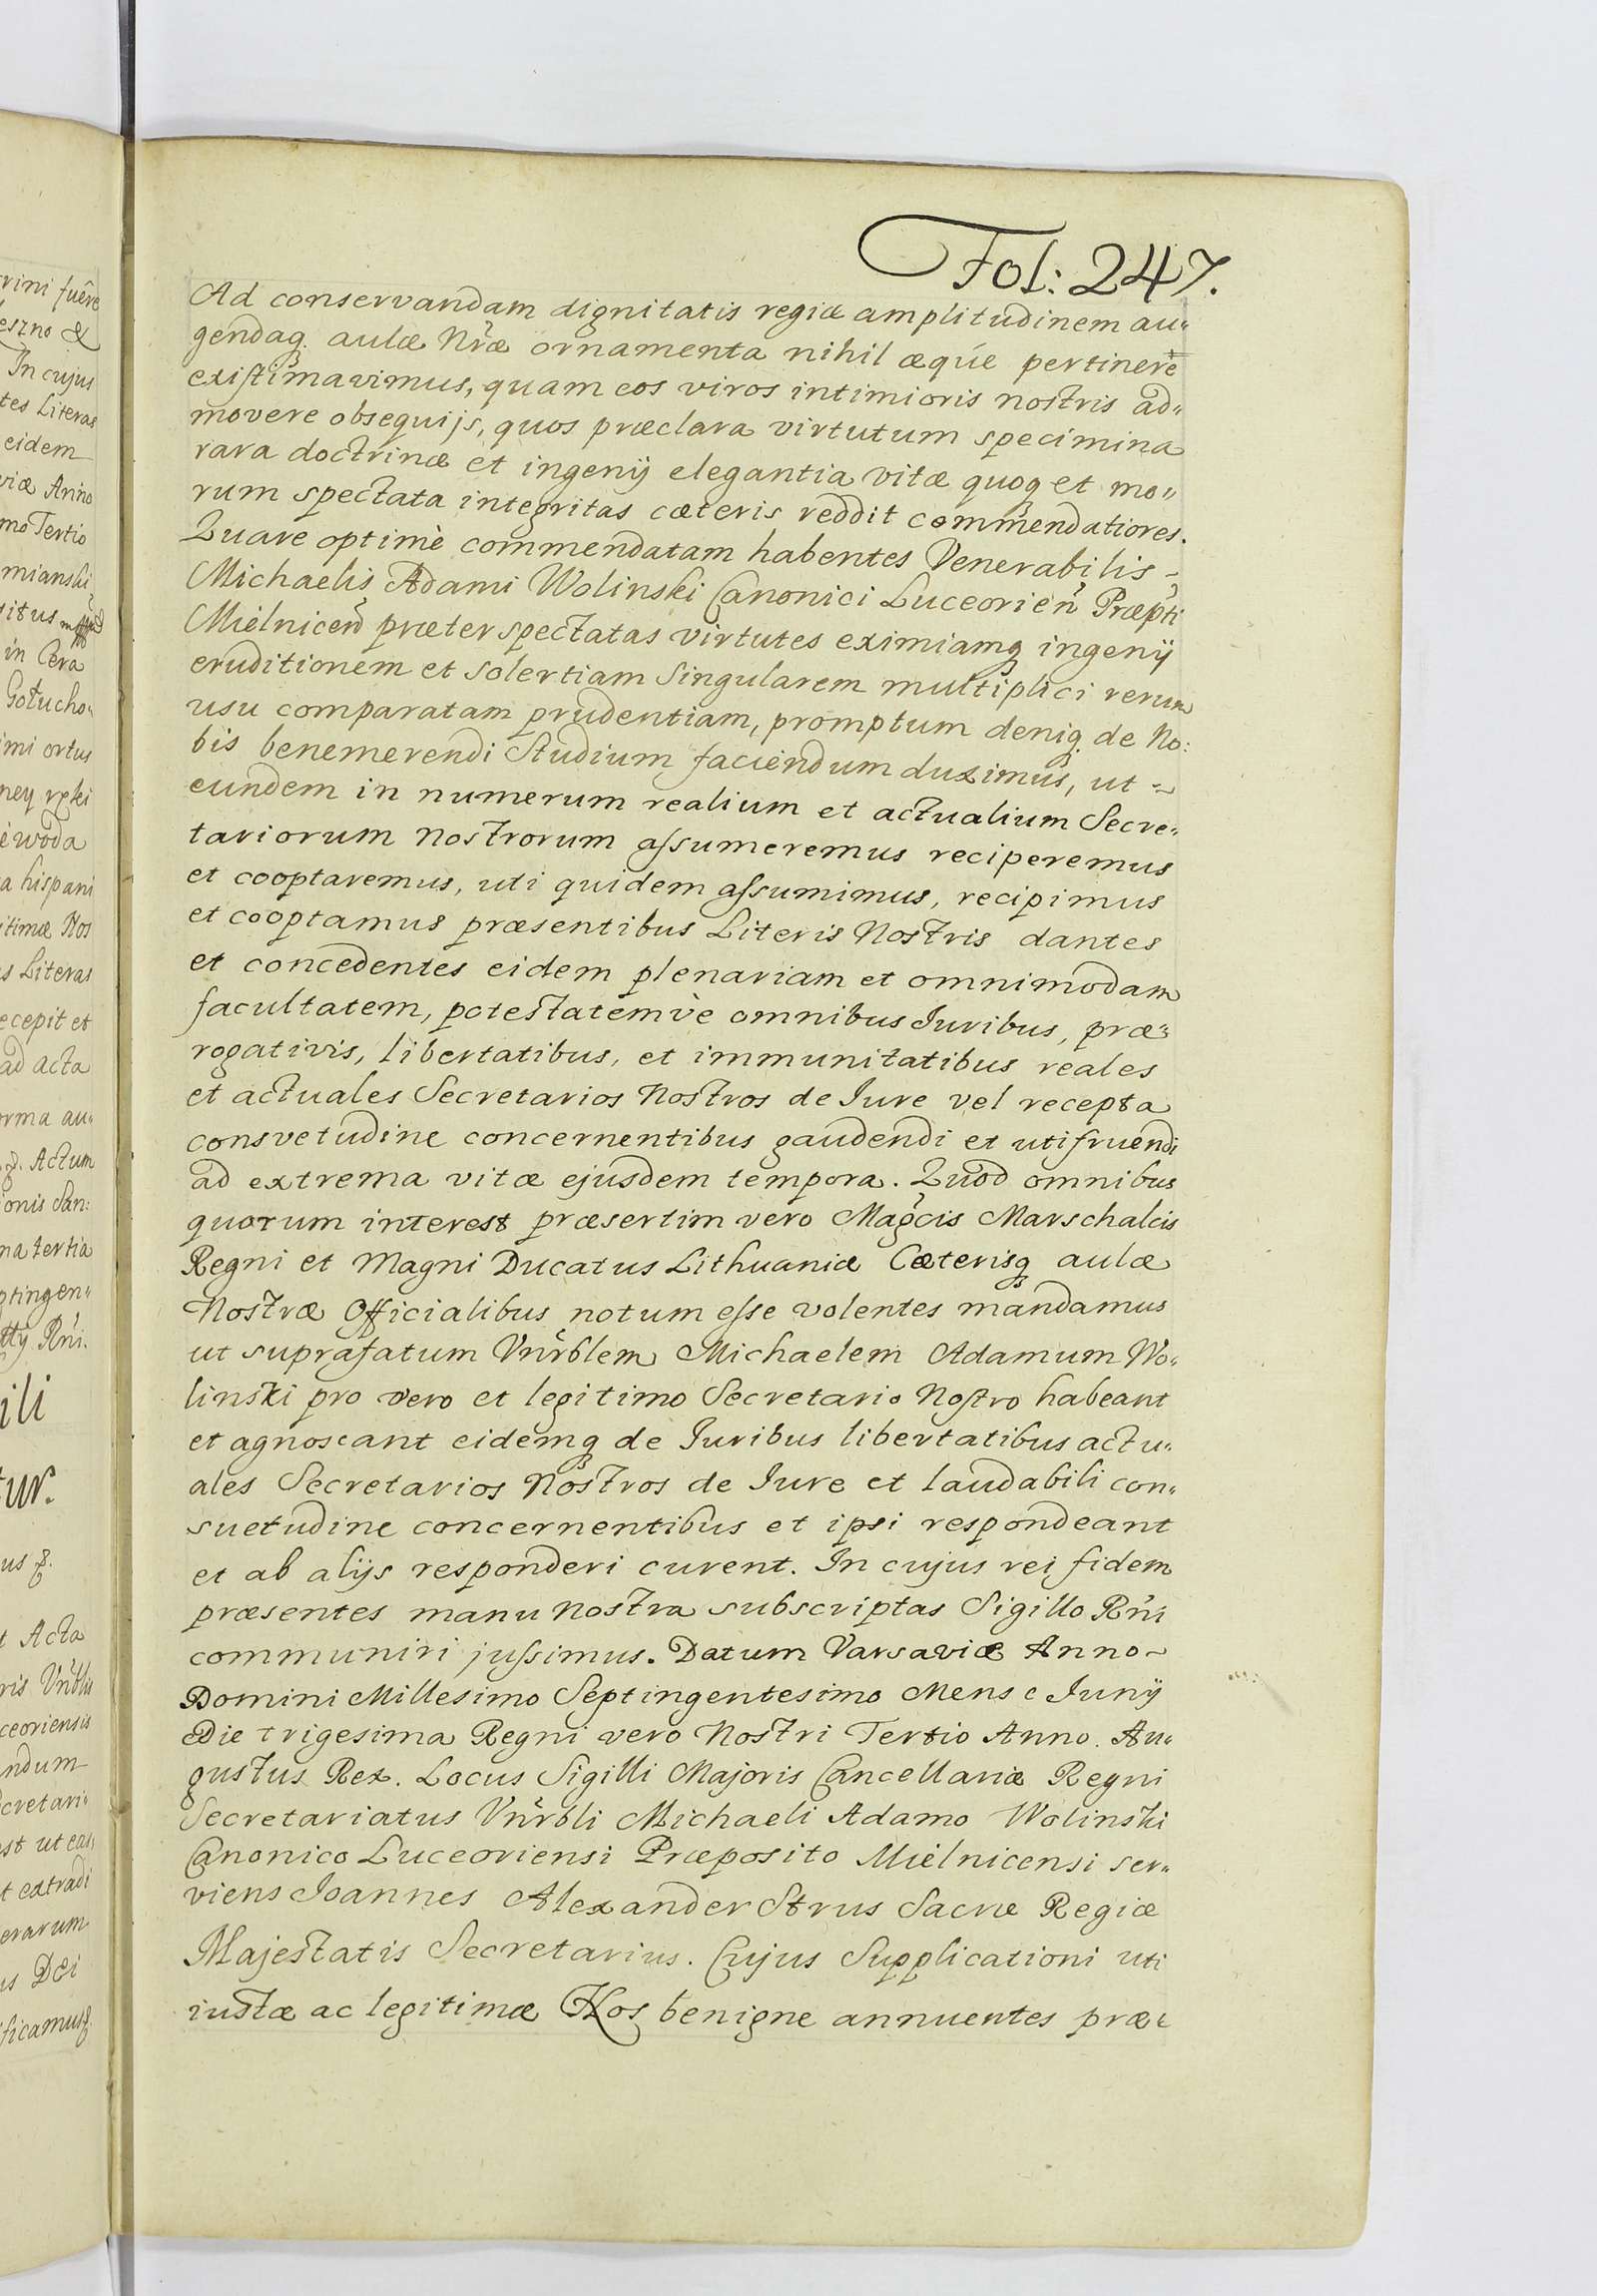 Fol: 247.
Ad conservandam dignitatis regiæ amplitudinem au„
gendaq. aulæ Nr̃æ ornamenta nihil æqúe pertinere
existimavimus, quam eos viros intimioris nostris ad„
movere obsequijs, quos præclara virtutum specimina
rara doctrinæ et ingenij elegantia vitæ quoq et mo„
rum spectata integritas cæteris reddit commendatiores.
Quare optimè commendatam habentes Venerabilis -
Michaelis Adami Wolinski Canonici Luceorien̉ Præpti
Mielnicen̉ præter spectatas virtutes eximiamq ingenij
eruditionem et solertiam Singularem multiplici rerum
usu comparatam prudentiam, promptum deniq. de No:
bis benemerendi Studium faciendum duximus, ut -
eundem in numerum realium et actualium Secre„
tariorum Nostrorum assumeremus reciperemus
et cooptaremus, uti quidem assumimus, recipimus
et cooptamus præsentibus Literis Nostris dantes
et concedentes eidem plenariam et omnimodam
facultatem, potestatemvè omnibus Iuribus, præ„
rogativis, libertatibus, et immunitatibus reales
et actuales Secretarios Nostros de Iure vel recepta
consvetudine concernentibus gaudendi et utifruendi
ad extrema vitæ ejusdem tempora. Quod omnibus
quorum interest præsertim vero Magcis Marschalcis
Regni et Magni Ducatus Lithuaniæ Cæterisq aulæ
Nostræ Officialibus notum esse volentes mandamus
ut suprafatum Vnrblem Michaelem Adamum Wo„
linski pro vero et legitimo Secretario Nostro habeant
et agnoscant eidemq de Iuribus libertatibus actu„
ales Secretarios Nostros de Iure et laudabili con„
suetudine concernentibus et ipsi respondeant
et ab alijs responderi curent. In cujus rei fidem
præsentes manu Nostra subscriptas Sigillo Rńi
communiri jussimus. Datum Varsaviæ Anno -
Domini Millesimo Septingentesimo Mense Iunij
Die trigesima Regni vero Nostri Tertio Anno. Au„
gustus Rex. Locus Sigilli Majoris Cancellariæ Regni
Secretariatus Vnrbli Michaeli Adamo Wolinski
Canonico Luceoriensi Præposito Mielnicensi ser„
viens Ioannes Alexander Strus Sacræ Regiæ
Majestatis Secretarius. Cujus Supplicationi uti
iustæ ac legitimæ Nos benigne annuentes præ„